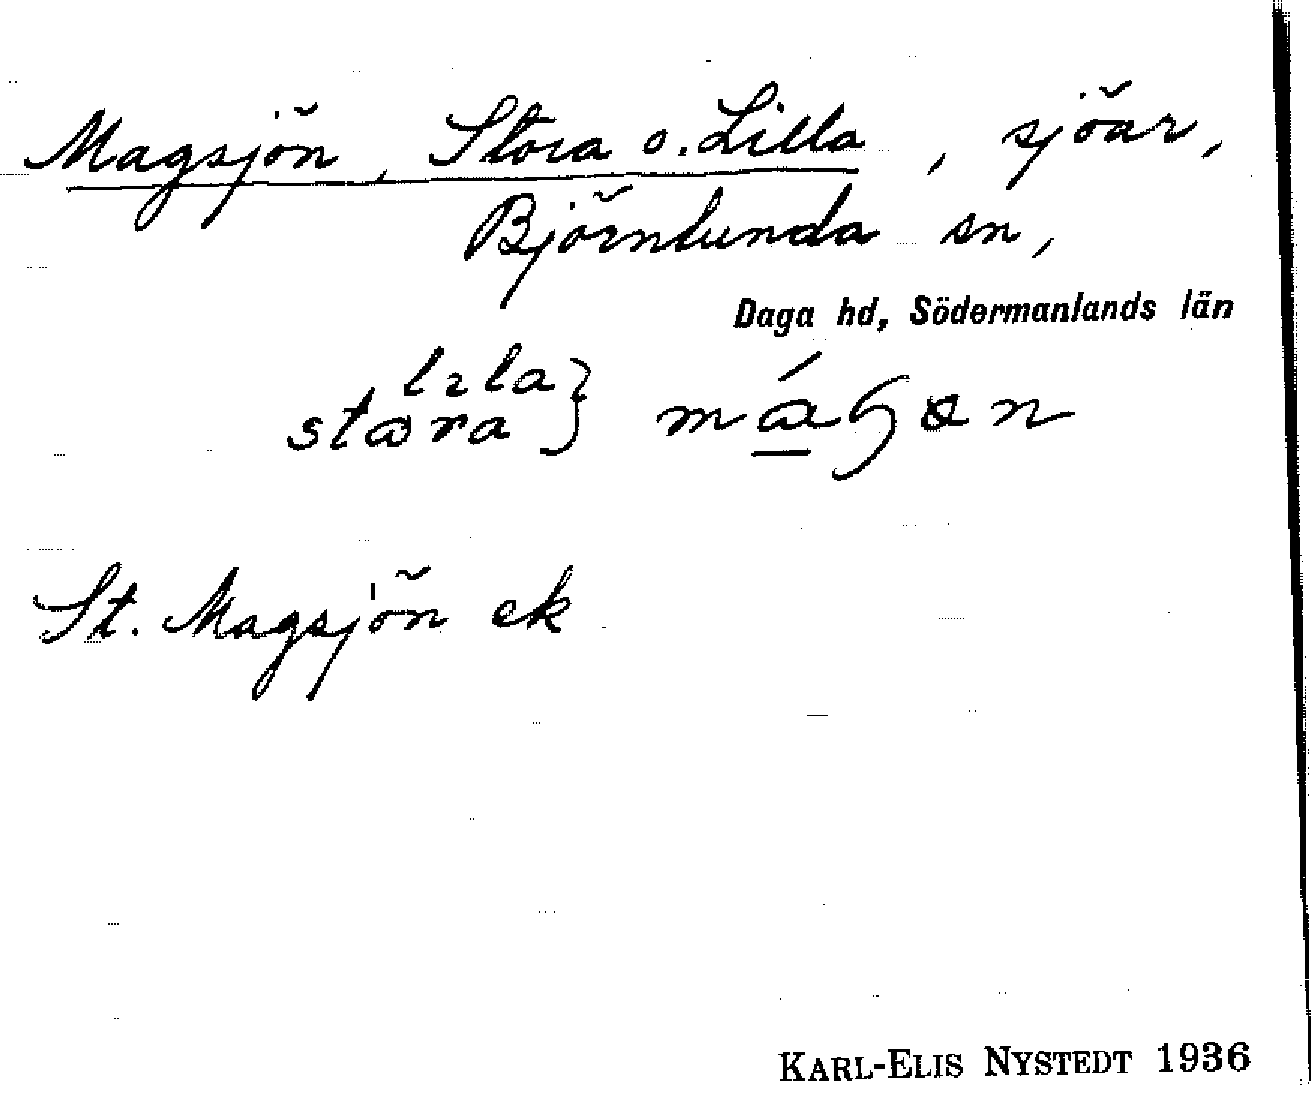 Magsjön, Stora o. Lilla, sjöar,
Björnlunda sn,
Daga hd, Södermanlands län
lila
stora }
St. Magsjön ek
KARL-ELIS NYSTEDT 1936